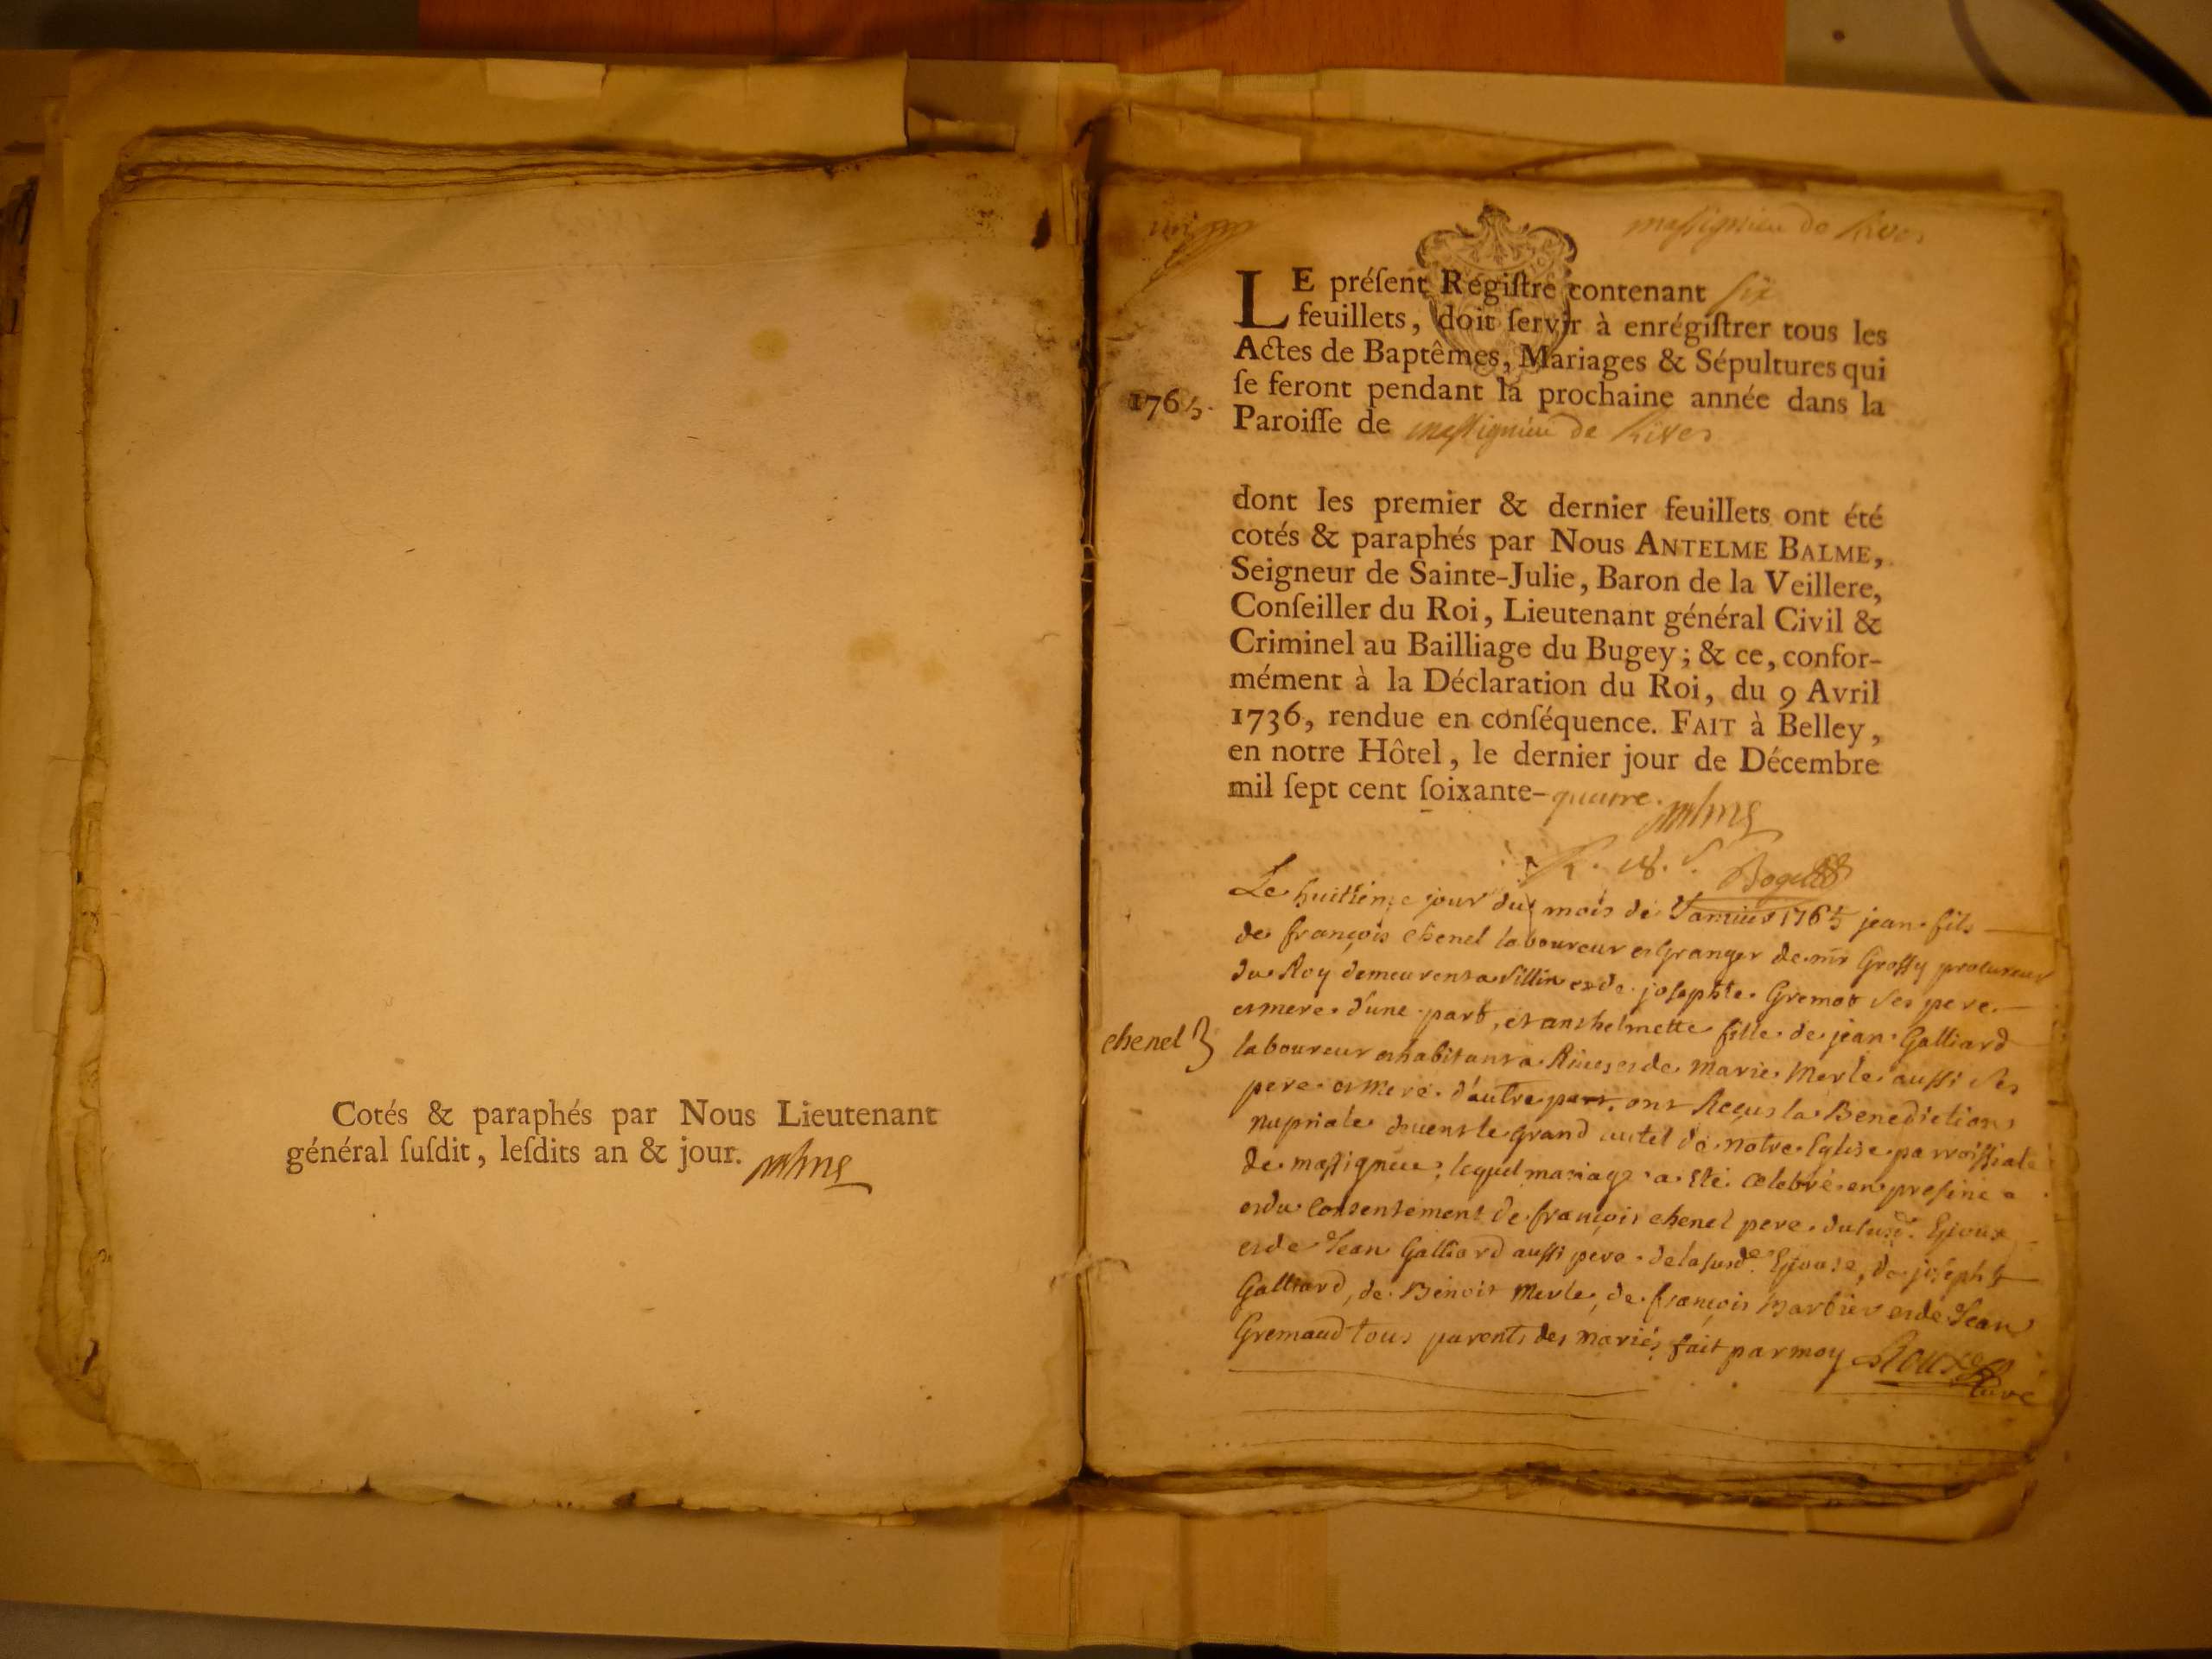 Cotés & paraphés par Nous Lieutenant
général ſuſdit, leſdits an & jour.
maſſignieu de Rives
LE préſent Régiſtre contenant ſix
feuillets, doit ſervir à enrégiſtrer tous les
Actes de Baptêmes, Mariages & Sépultures qui
ſe feront pendant la prochaine année dans la
1765.
Paroiſſe de maſſignieu de Rives
dont les premier & dernier feuillets ont été
cotés & paraphés par Nous ANTELME BALME,
Seigneur de Sainte-Julie, Baron de la Veillere,
Conſeiller du Roi, Lieutenant général Civil &
Criminel au Bailliage du Bugey; & ce, confor-
mément à la Déclaration du Roi, du 9 Avril
1736, rendue en conſéquence. FAIT à Belley,
en notre Hôtel, le dernier jour de Décembre
mil ſept cent ſoixante-quatre.
Le huitième jour du mois de Janvier 1765 jean fils
de françois chenel laboureur et Granger de mr Groſſy procureur
du Roy demeurent a Villin et de josephte Gremot ses pere
et mere d'une part, et anthelmette fille de jean Galliard
chenel
laboureur et habitant a Rives et de marie Merle auſſi ses
pere et mere d'autre part, ont Reçus la Benediction
nuptiale devent le grand autel de notre Eglise parroiſſiale
de maſſignieu, lequel mariage a été celebré en presence
et du Consentement de françois chenel pere du susd. Epoux
et de Jean Galliard auſſi pere de la susde. Epouse, de joseph
Galliard, de Benoit Merle, de françois Barbier et de Jean
Gremaud tous parents des mariés fait par moy Roux
Curé